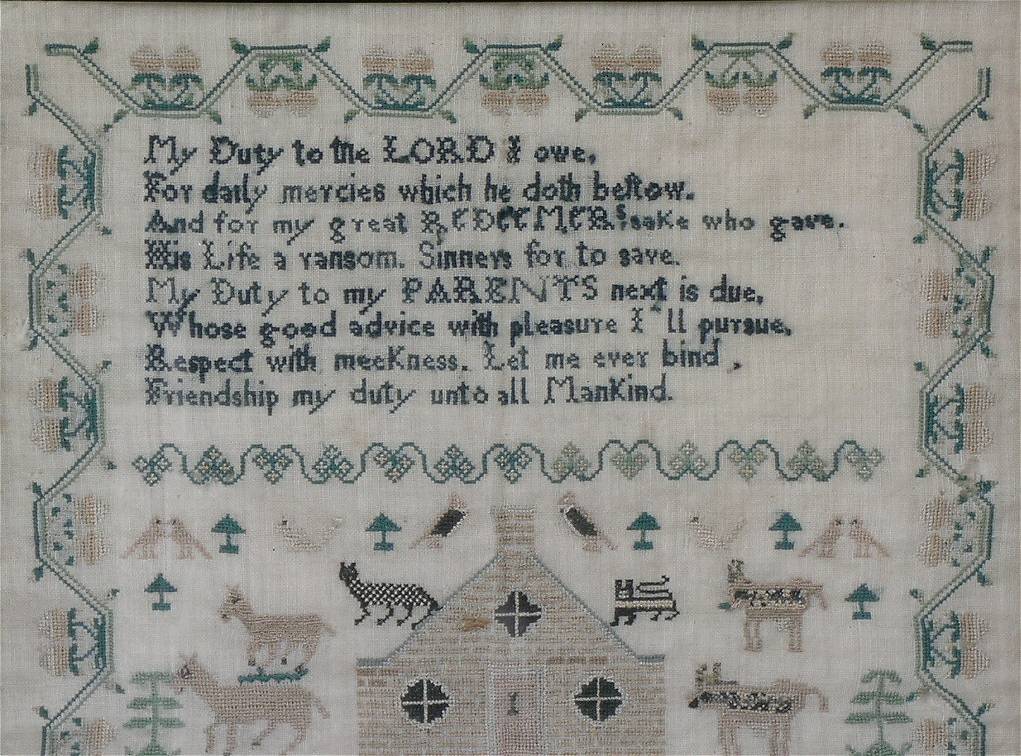 My Duty to the LORD I owe,
For daily mercies which he doth beſtow.
And for my great REDEEMERs sake who gave.
His Life a ransom. Sinners for to save.
My Duty to my PARENTS next is due,
Whose good advice with pleasure I'll pursue,
Respect with meekness. Let me ever bind,
Friendship my duty unto all Mankind.
1